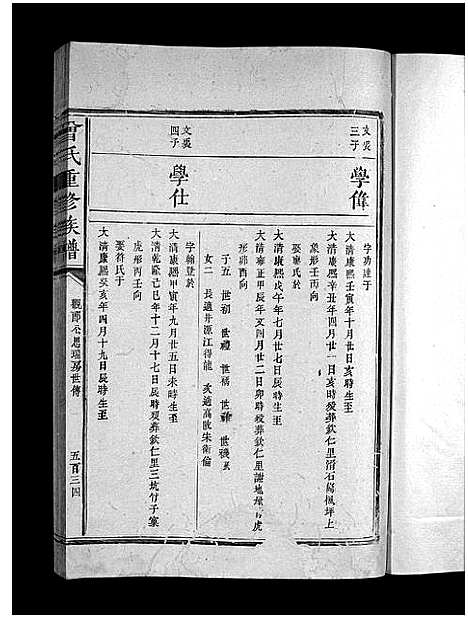 文奕三子
學偉
字功達于
大清康熙壬寅年十月廿日亥時生至
大清康熙辛丑年四月廿一日亥時歿葬欽仁里滑石陽楓坪上
象形壬丙向
娶廖氏于
大清康熙戊午年七月廿七日辰時生至
大清雍正甲辰年又四月廿二日卯時歿葬欽仁里謝地 虎
形卯酉向
子五 世 世禮 世 世 世璣
女二 長適井源江得龍 次適高 朱衛倫
文奕四子
學仕
字翰登於
大清康熙甲寅年九月廿五日未時生至
大清乾隆己巳年十二月十七日辰時歿葬欽仁里三坑竹子寨
虎形丙壬向
娶符氏于
大清康熙癸亥年四月十九日辰時生至
曾氏重修族譜
觀郎公思瑞房世傳
五百三四